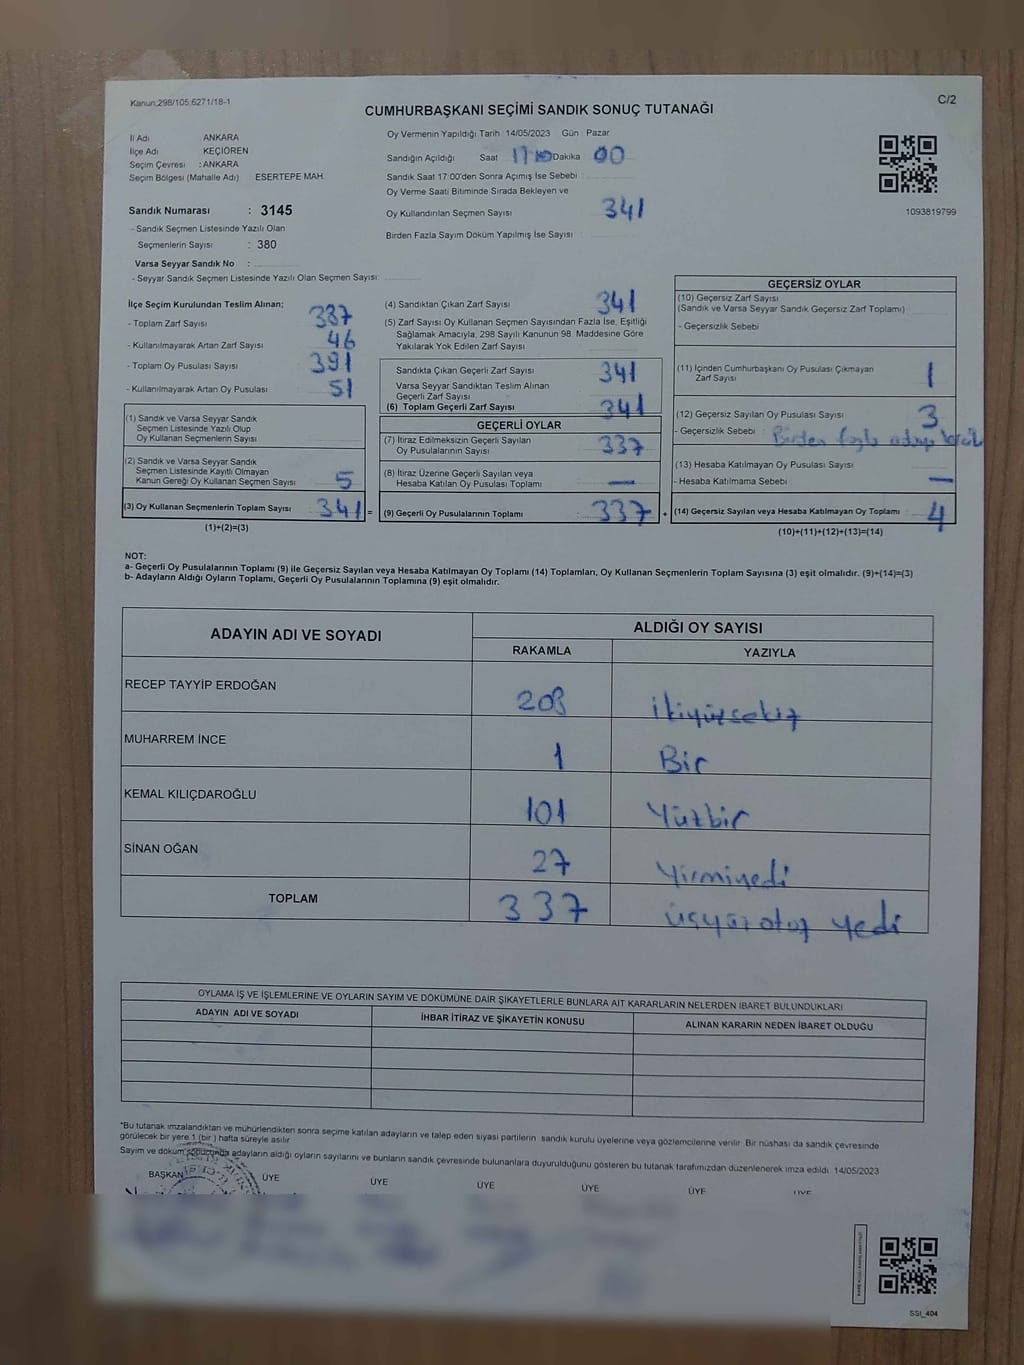 Kanun;298/105;6271/18-1
C/2
CUMHURBAŞKANI SEÇİMİ SANDIK SONUÇ TUTANAĞI
İl Adı ANKARA
İlçe Adı KEÇİÖREN
Seçim Çevresi : ANKARA
Seçim Bölgesi (Mahalle Adı) ESERTEPE MAH.
Sandık Numarası : 3145
- Sandık Seçmen Listesinde Yazılı Olan
Seçmenlerin Sayısı : 380
Varsa Seyyar Sandık No :
- Seyyar Sandık Seçmen Listesinde Yazılı Olan Seçmen Sayısı:
Oy Vermenin Yapıldığı Tarih 14/05/2023 Gün Pazar
Sandığın Açıldığı Saat 17 Dakika 00
Sandık Saat 17:00'den Sonra Açımış İse Sebebi :
Oy Verme Saati Bitiminde Sırada Bekleyen ve
Oy Kullandırılan Seçmen Sayısı 341
Birden Fazla Sayım Döküm Yapılmış İse Sayısı :
1093819799
İlçe Seçim Kurulundan Teslim Alınan;
- Toplam Zarf Sayısı 387
- Kullanılmayarak Artan Zarf Sayısı 46
- Toplam Oy Pusulası Sayısı 391
- Kullanılmayarak Artan Oy Pusulası 51
(1) Sandık ve Varsa Seyyar Sandık
Seçmen Listesinde Yazılı Olup
Oy Kullanan Seçmenlerin Sayısı
(2) Sandık ve Varsa Seyyar Sandık
Seçmen Listesinde Kayıtlı Olmayan
Kanun Gereği Oy Kullanan Seçmen Sayısı 5
(3) Oy Kullanan Seçmenlerin Toplam Sayısı 341 =
(1)+(2)=(3)
(4) Sandıktan Çıkan Zarf Sayısı 341
(5) Zarf Sayısı Oy Kullanan Seçmen Sayısından Fazla İse, Eşitliği
Sağlamak Amacıyla, 298 Sayılı Kanunun 98. Maddesine Göre
Yakılarak Yok Edilen Zarf Sayısı
Sandıkta Çıkan Geçerli Zarf Sayısı 341
Varsa Seyyar Sandıktan Teslim Alınan
Geçerli Zarf Sayısı
(6) Toplam Geçerli Zarf Sayısı 341
GEÇERLİ OYLAR
(7) İtiraz Edilmeksizin Geçerli Sayılan
Oy Pusulalarının Sayısı 337
(8) İtiraz Üzerine Geçerli Sayılan veya
Hesaba Katılan Oy Pusulası Toplamı —
(9) Geçerli Oy Pusulalarının Toplamı 337 +
GEÇERSİZ OYLAR
(10) Geçersiz Zarf Sayısı
(Sandık ve Varsa Seyyar Sandık Geçersiz Zarf Toplamı)
- Geçersizlik Sebebi
(11) İçinden Cumhurbaşkanı Oy Pusulası Çıkmayan
Zarf Sayısı 1
(12) Geçersiz Sayılan Oy Pusulası Sayısı 3
- Geçersizlik Sebebi : Birden fazla adaya
(13) Hesaba Katılmayan Oy Pusulası Sayısı
- Hesaba Katılmama Sebebi —
(14) Geçersiz Sayılan veya Hesaba Katılmayan Oy Toplamı 4
(10)+(11)+(12)+(13)=(14)
NOT:
a- Geçerli Oy Pusulalarının Toplamı (9) ile Geçersiz Sayılan veya Hesaba Katılmayan Oy Toplamı (14) Toplamları, Oy Kullanan Seçmenlerin Toplam Sayısına (3) eşit olmalıdır. (9)+(14)=(3)
b- Adayların Aldığı Oyların Toplamı, Geçerli Oy Pusulalarının Toplamına (9) eşit olmalıdır.
ADAYIN ADI VE SOYADI ALDIĞI OY SAYISI
RAKAMLA YAZIYLA
RECEP TAYYİP ERDOĞAN 208 ikiyüzsekiz
MUHARREM İNCE 1 Bir
KEMAL KILIÇDAROĞLU 101 Yüzbir
SİNAN OĞAN 27 Yirmiyedi
TOPLAM 337 üçyüz otuz yedi
OYLAMA İŞ VE İŞLEMLERİNE VE OYLARIN SAYIM VE DÖKÜMÜNE DAİR ŞİKAYETLERLE BUNLARA AİT KARARLARIN NELERDEN İBARET BULUNDUKLARI
ADAYIN ADI VE SOYADI İHBAR İTİRAZ VE ŞİKAYETİN KONUSU ALINAN KARARIN NEDEN İBARET OLDUĞU
*Bu tutanak imzalandıktan ve mühürlendikten sonra seçime katılan adayların ve talep eden siyasi partilerin sandık kurulu üyelerine veya gözlemcilerine verilir. Bir nüshası da sandık çevresinde
görülecek bir yere 1 (bir) hafta süreyle asılır
Sayım ve döküm sonucunda adayların aldığı oyların sayılarını ve bunların sandık çevresinde bulunanlara duyurulduğunu gösteren bu tutanak tarafımızdan düzenlenerek imza edildi. 14/05/2023
BAŞKAN ÜYE ÜYE ÜYE ÜYE ÜYE ÜYE
SSI_404